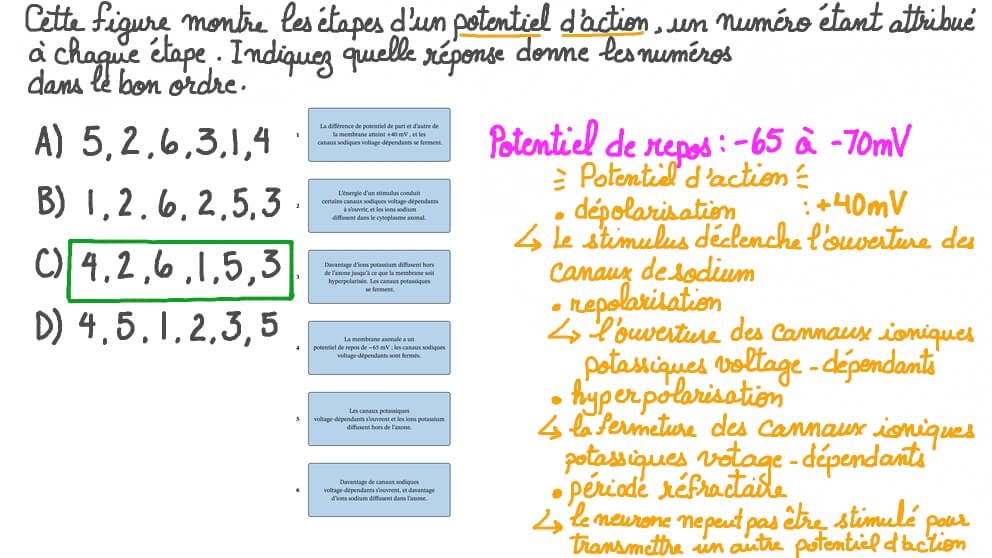 Cette figure montre les étapes d'un potentiel d'action, un numéro étant attribué
à chaque étape. Indiquez quelle réponse donne les numéros
dans le bon ordre.
A) 5, 2, 6, 3, 1, 4
B) 1, 2, 6, 2, 5, 3
C) 4, 2, 6, 1, 5, 3
D) 4, 5, 1, 2, 3, 5
1
La différence de potentiel de part et d'autre de
la membrane atteint +40 mV, et les
canaux sodiques voltage-dépendants se ferment.
2
L'énergie d'un stimulus conduit
certains canaux sodiques voltage-dépendants
à s'ouvrir, et les ions sodium
diffusent dans le cytoplasme axonal.
3
Davantage d'ions potassium diffusent hors
de l'axone jusqu'à ce que la membrane soit
hyperpolarisée. Les canaux potassiques
se ferment.
4
La membrane axonale a un
potentiel de repos de −65 mV ; les canaux sodiques
voltage-dépendants sont fermés.
5
Les canaux potassiques
voltage-dépendants s'ouvrent et les ions potassium
diffusent hors de l'axone.
6
Davantage de canaux sodiques
voltage-dépendants s'ouvrent, et davantage
d'ions sodium diffusent dans l'axone.
Potentiel de repos : -65 à -70mV
Potentiel d'action
• dépolarisation : +40mV
↳ Le stimulus déclenche l'ouverture des
canaux de sodium
• repolarisation
↳ l'ouverture des cannaux ioniques
potassiques voltage-dépendants
• hyperpolarisation
↳ la fermeture des cannaux ioniques
potassiques votage-dépendants
• période réfractaire
↳ le neurone ne peut pas être stimulé pour
transmettre un autre potentiel d'action